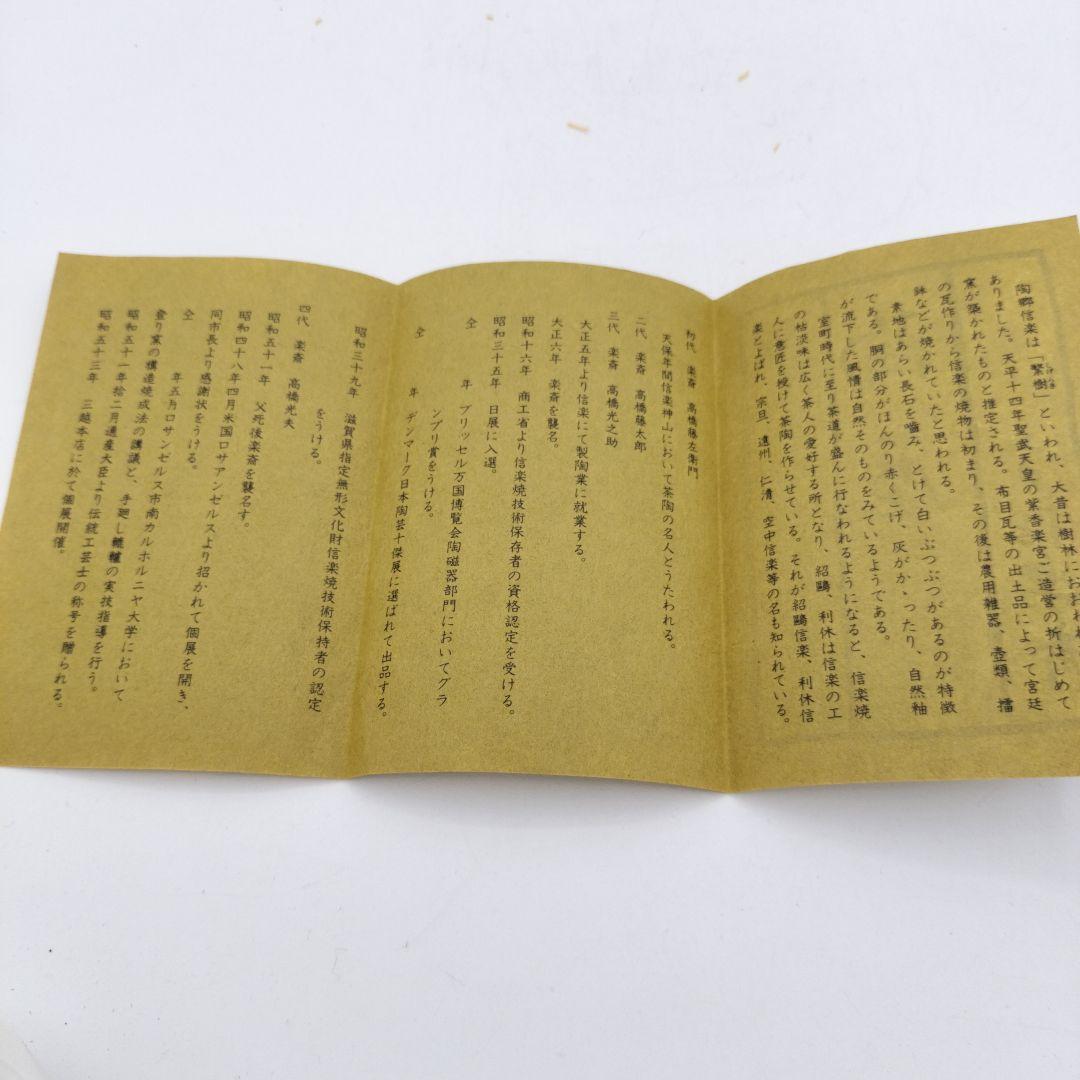 陶郷信楽は「繁樹」といわれ、大昔は樹林におおわれ
ありました。天平十四年聖武天皇の紫香楽宮ご造営の折はじめて
窯が築かれたものと推定される。布目瓦等の出土品によって宮廷
の瓦作りから信楽の焼物は初まり、その後は農用雑器、壺類、擂
鉢などが焼かれていたと思われる。
素地はあらい長石を噛み、とけて白いぶつぶつがあるのが特徴
である。胴の部分がほんのり赤くこげ、灰がかゝったり、自然釉
が流下した風情は自然そのものをみているようである。
室町時代に至り茶道が盛んに行なわれるようになると、信楽焼
の枯淡味は広く茶人の愛好する所となり、紹鴎、利休は信楽の工
人に意匠を授けて茶陶を作らせている。それが紹鴎信楽、利休信
楽とよばれ、宗旦、遠州、仁清、空中信楽等の名も知られている。
初代 楽斎 高橋藤左衛門
天保年間信楽神山において茶陶の名人とうたわれる。
二代 楽斎 高橋藤太郎
三代 楽斎 高橋光之助
大正五年より信楽にて製陶業に就業する。
大正六年 楽斎を襲名。
昭和十六年 商工省より信楽焼技術保存者の資格認定を受ける。
昭和三十五年 日展に入選。
仝 年 ブリッセル万国博覧会陶磁器部門においてグラ
ンプリ賞をうける。
仝 年 デンマーク日本陶芸十傑展に選ばれて出品する。
昭和三十九年 滋賀県指定無形文化財信楽焼技術保持者の認定
をうける。
四代 楽斎 高橋光夫
昭和五十一年 父死後楽斎を襲名す。
昭和四十八年四月米国ロサアンゼルスより招かれて個展を開き、
同市長より感謝状をうける。
仝 年五月ロサンゼルス市南カルホルニヤ大学において
登り窯の構造焼成法の講議と、手廻し轆轤の実技指導を行う。
昭和五十一年拾二月通産大臣より伝統工芸士の称号を贈られる。
昭和五十三年 三越本店に於て個展開催。